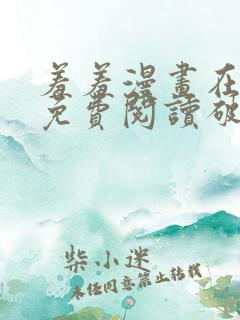 羞羞漫畫在
免費閱讀破
柴小迷
未經同意禁止轉載